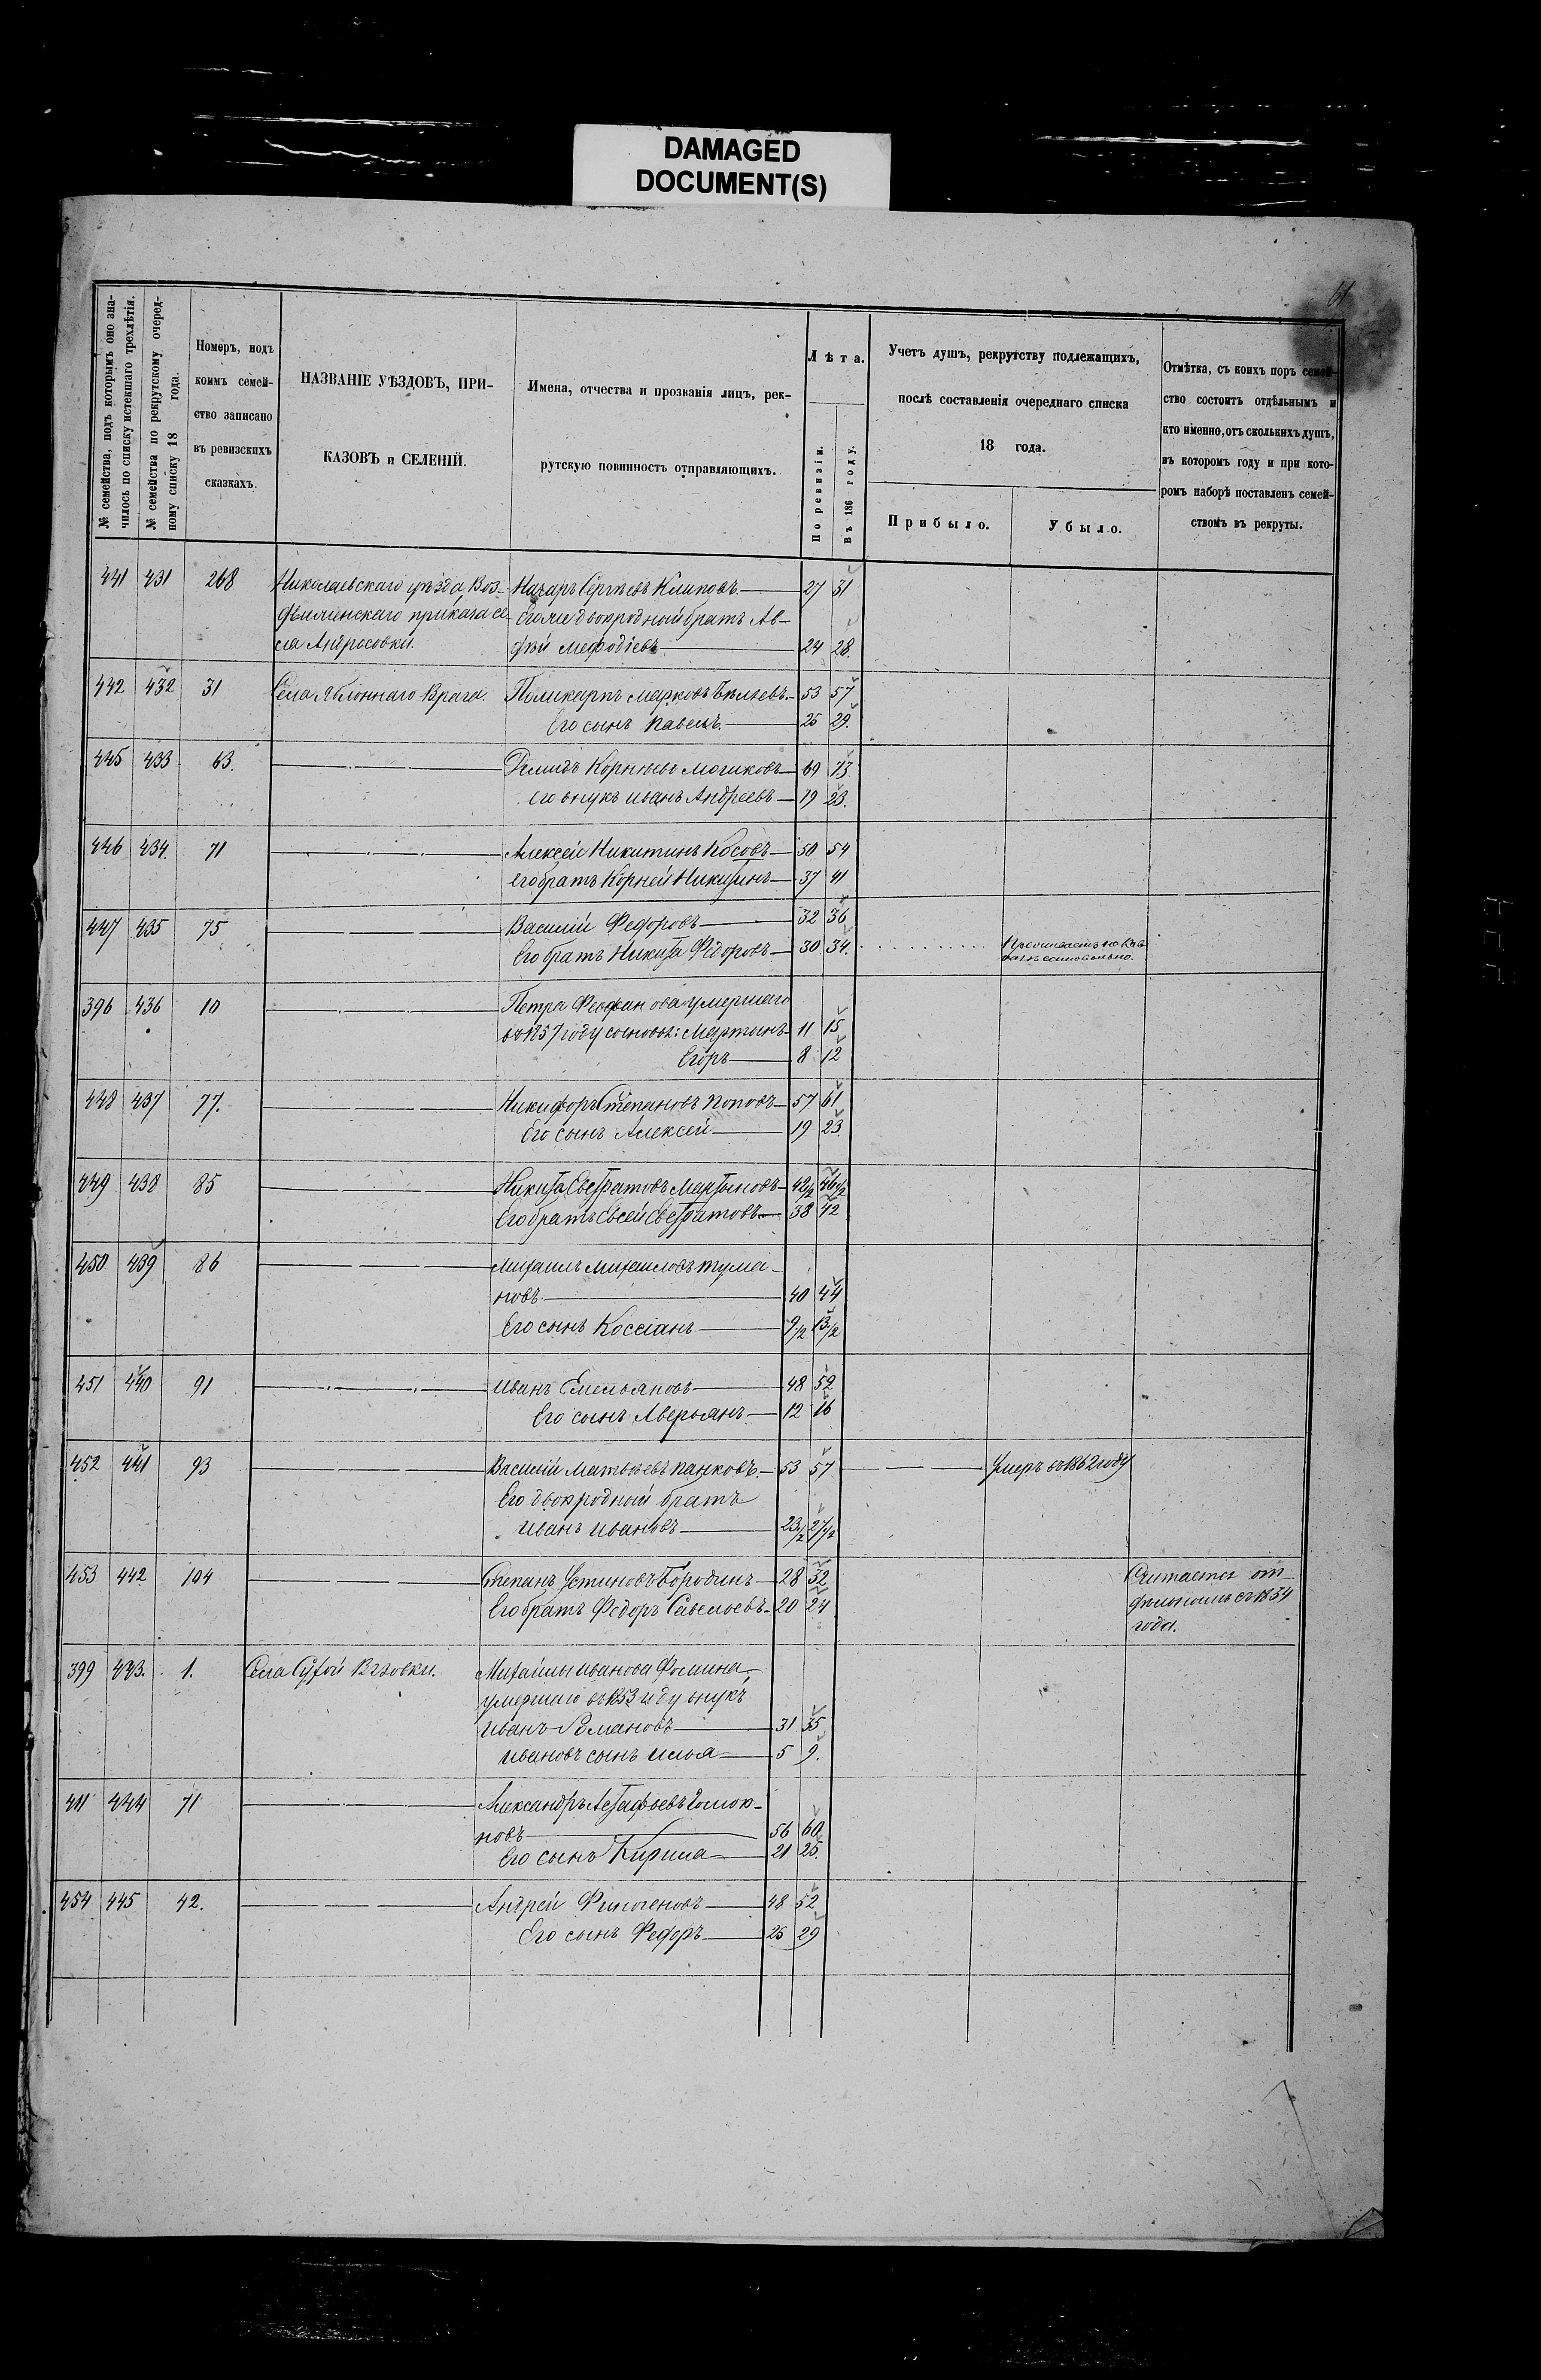 DAMAGED
DOCUMENT(S)
61
№ семейства, подъ которымъ оно зна-
чилось по списку истекшаго трехлѣтія.
№ семейства по рекрутскому очеред-
ному списку 18 года.
Номеръ, подъ
коимъ семей-
ство записано
въ ревизскихъ
сказкахъ.
НАЗВАНІЕ УѢЗДОВЪ, ПРИ-
КАЗОВЪ и СЕЛЕНІЙ.
Имена, отчества и прозванія лицъ, рек-
рутскую повинность отправляющихъ.
Лѣта.
По ревизіи.
Въ 186 году.
Учетъ душъ, рекрутству подлежащихъ,
послѣ составленія очереднаго списка
18 года.
Прибыло.
Убыло.
Отмѣтка, съ коихъ поръ семей-
ство состоитъ отдѣльнымъ и
кто именно, отъ сколькихъ душъ,
въ которомъ году и при кото-
ромъ наборѣ поставленъ семей-
ствомъ въ рекруты.
441 431 268 Николаевскаго уѣзда Воз- Назаръ Сергѣевъ Климовъ 27 31
приказа се- двоюродный братъ Ав-
ла Андросовки. дѣй Мефодіевъ 24 28.
442 432 31 Села Яблоннаго Врага. Поликарпъ Марковъ Бѣляевъ 53 57
Его сынъ Павелъ. 25 29.
445 433 63. Демидъ Корнѣевъ 69 73
Его внукъ Иванъ Андреевъ 19 23.
446 434. 71 Алексей Никитинъ Косовъ 50 54
Его братъ Корней Никитинъ 37 41
447 435 75 Василій Федоровъ 32 36
Его братъ Никита Федоровъ 30 34.
396 436 10 Петра Феофанова умершаго
въ 1857 году сыновья: Мартынъ 11 15
Егоръ 8 12
448 437 77. Никифоръ Степановъ Поповъ 57 61
Его сынъ Алексей 19 23.
449 438 85 Никита Евстратовъ Мартыновъ 42½ 46½
Его братъ Евсей Евстратовъ 38 42
450 439 86 Михаилъ Михаиловъ Тума-
новъ 40 44
Его сынъ Коссіанъ 9½ 13½
451 440 91 Иванъ Емельяновъ 48 52
Его сынъ Аверьянъ 12 16
452 441 93 Василій Матвѣевъ Панковъ. 53 57 Умеръ въ 1862 году
Его двоюродный братъ
Иванъ Ивановъ 23½ 27½
453 442 104 Степанъ Устиновъ Бородинъ 28 32 Считается от-
Его братъ Федоръ Савельевъ 20 24 дѣльнымъ съ 1834
года.
399 443. 1. Села Сухой Вязовки. Михайлы Иванова Фомина,
умершаго въ 1853 году внукъ
Иванъ Романовъ 31 35
Ивановъ сынъ Илья 5 9.
411 444 71 Александръ Астафьевъ
новъ 56 60
Его сынъ Кирила 21 25.
454 445 42. Андрей Филогеновъ 48 52
Его сынъ Федоръ 25 29